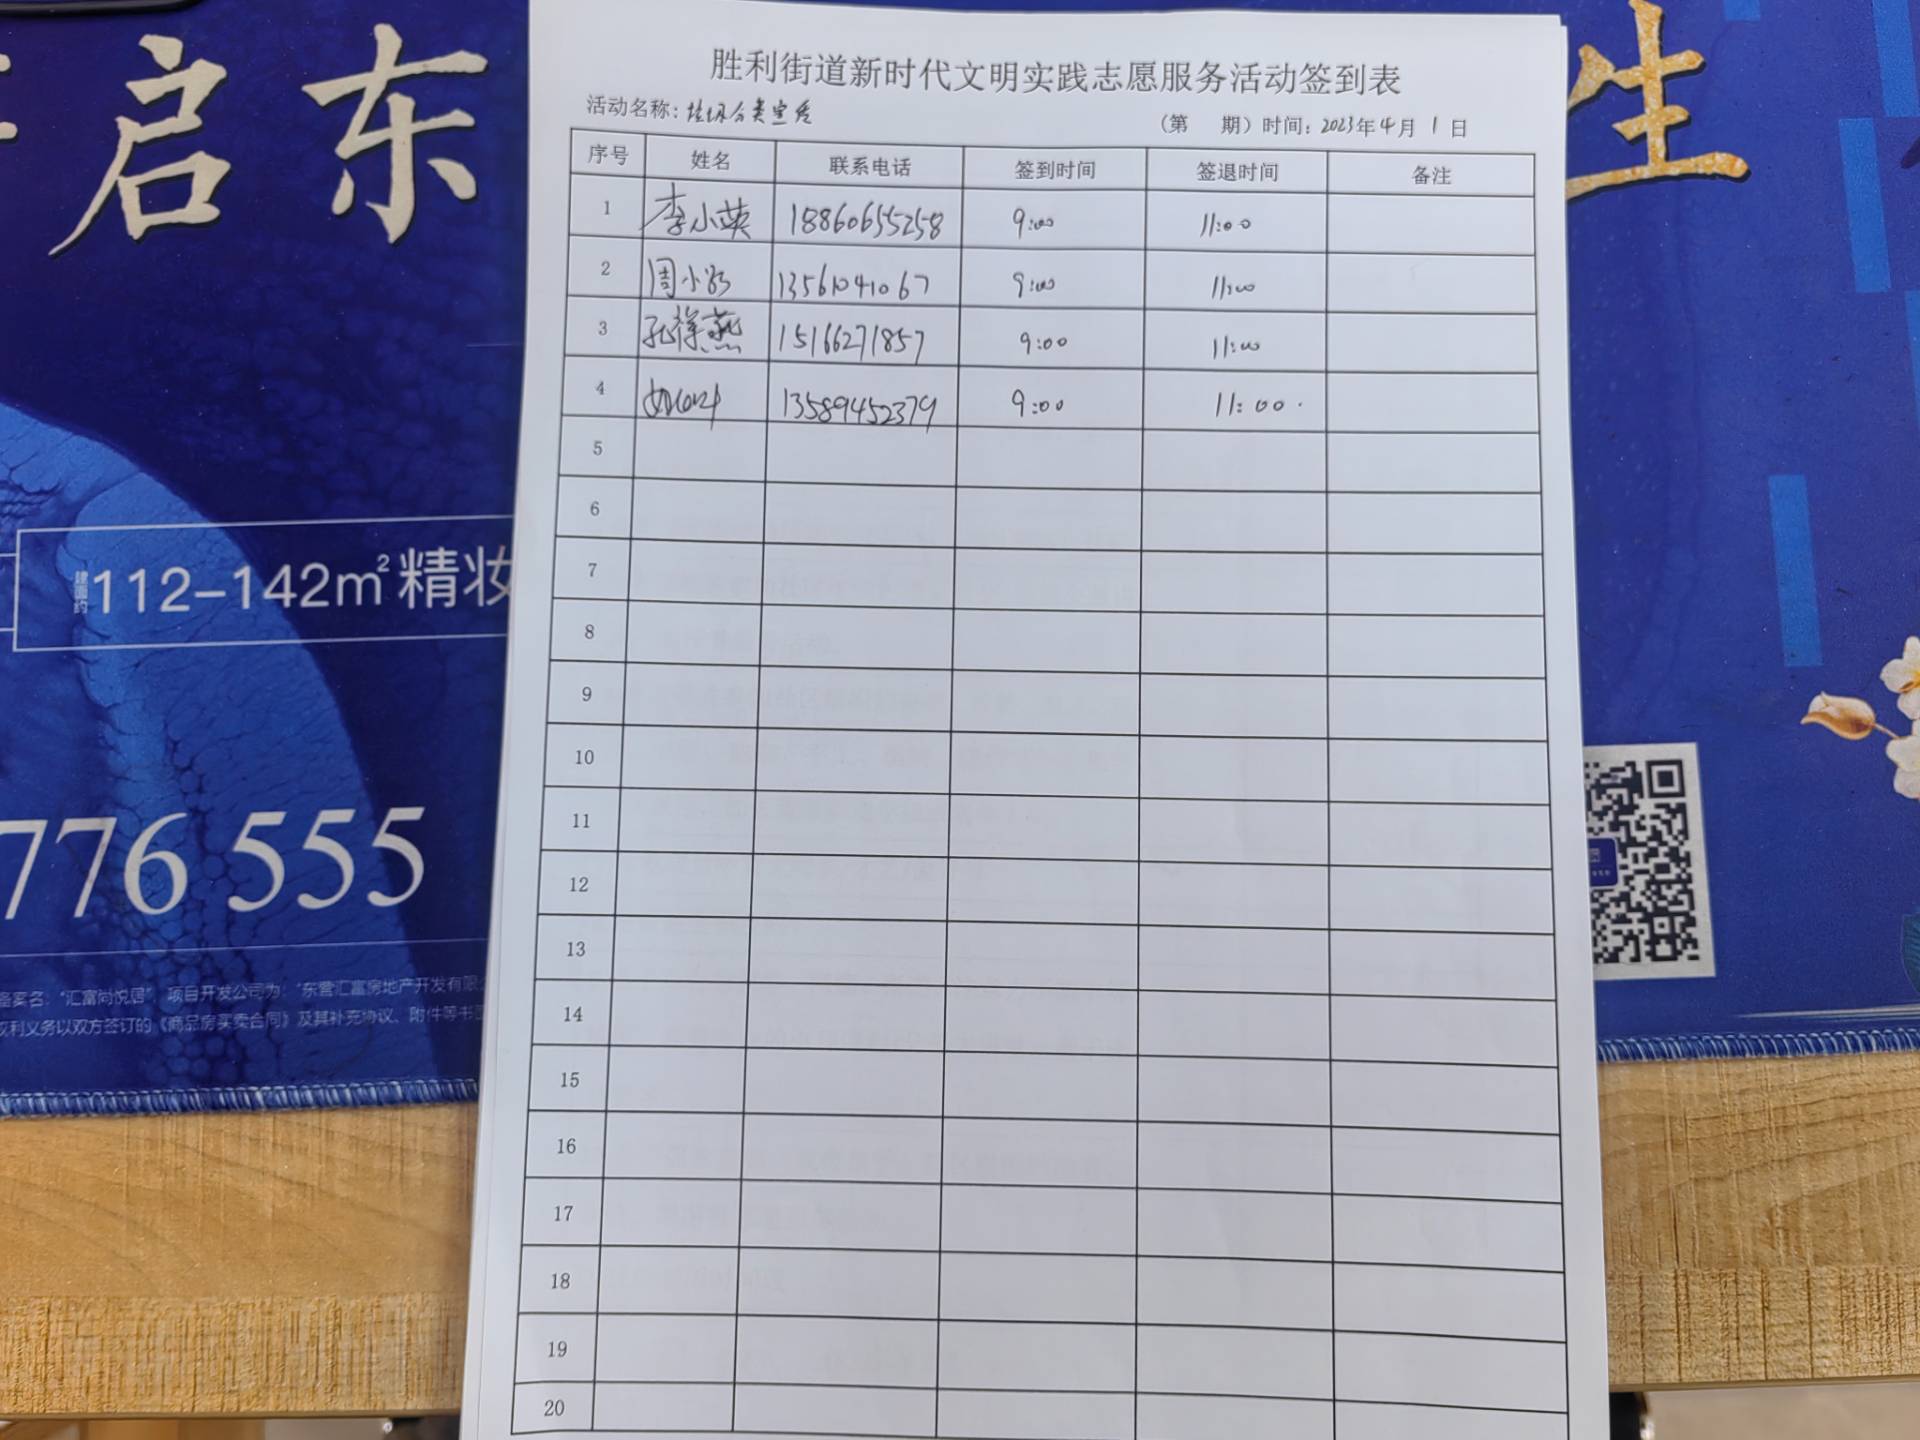 启东
生
建面约112-142m²精妆
776 555
备案名："汇富尚悦居"，项目开发公司为："东营汇富房地产开发有限
权利义务以双方签订的《商品房买卖合同》及其补充协议、附件等书面
胜利街道新时代文明实践志愿服务活动签到表
活动名称：垃圾分类宣传
（第 期）时间：2023年4月1日
序号 姓名 联系电话 签到时间 签退时间 备注
1 李小英 18860655258 9:00 11:00
2 周小 13561041067 9:00 11:00
3 孔祥燕 15166271857 9:00 11:00
4 13589452379 9:00 11:00
5
6
7
8
9
10
11
12
13
14
15
16
17
18
19
20